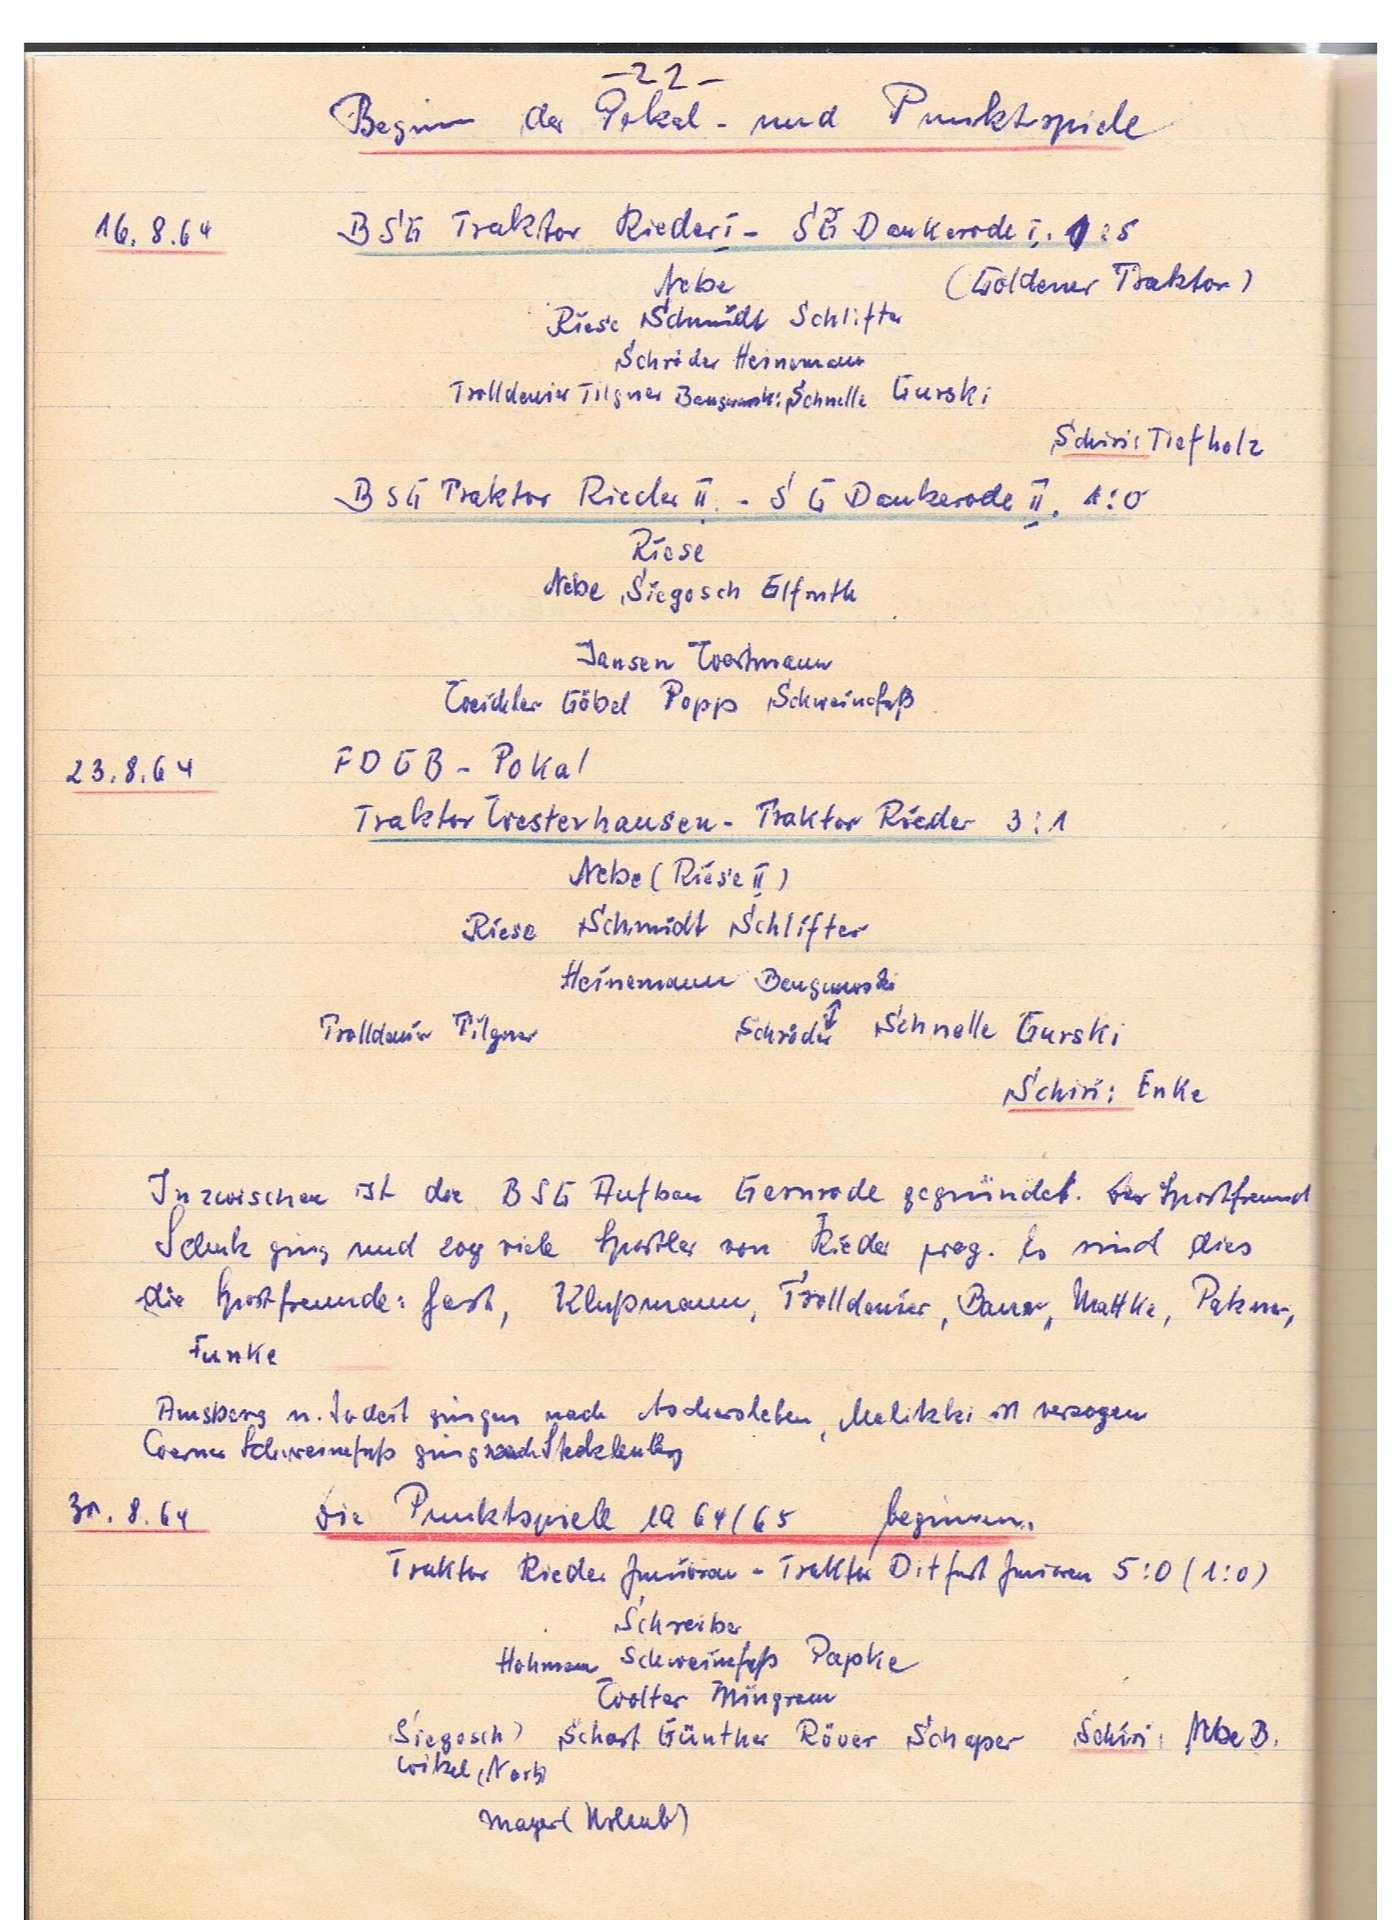 -22-
Beginn der Pokal- und Punktspiele
16.8.64 BSG Traktor Rieder I - SG Dankerode I. :5
Nebe (Goldener Traktor)
Riese Schmidt Schlifter
Schröder Heinemann
Trolldenier Tilgner Schnelle Gurski
Schiri: Tiefholz
BSG Traktor Rieder II. - SG Dankerode II. 1:0
Riese
Nebe Siegosch Elfroth
Jansen Wortmann
Weichler Göbel Popp Schweinefuß
23.8.64 FDGB-Pokal
Traktor Westerhausen - Traktor Rieder 3:1
Nebe (Riese II)
Riese Schmidt Schlifter
Heinemann
Trolldenier Tilgner Schröder Schnelle Gurski
Schiri: Enke
Inzwischen ist die BSG Aufbau Gernrode gegründet. Der Sportfreund
Schenk ging und zog viele Sportler von Rieder weg. Es sind dies
die Sportfreunde: Gast, Klußmann, Trolldenier, Bauer, Mattke,
Funke
Amsberg u. gingen nach Aschersleben, ist verzogen
Werner Schweinefuß ging nach Stecklenberg
30.8.64 Die Punktspiele 1964/65 beginnen.
Traktor Rieder Junioren - Traktor Ditfurt Junioren 5:0 (1:0)
Schreiber
Hohmann Schweinefuß Papke
Wolter Mingram
Siegosch) Schart Günther Röver Schaper Schiri: Nebe B.
Witzel,
Mayer (Holeub)